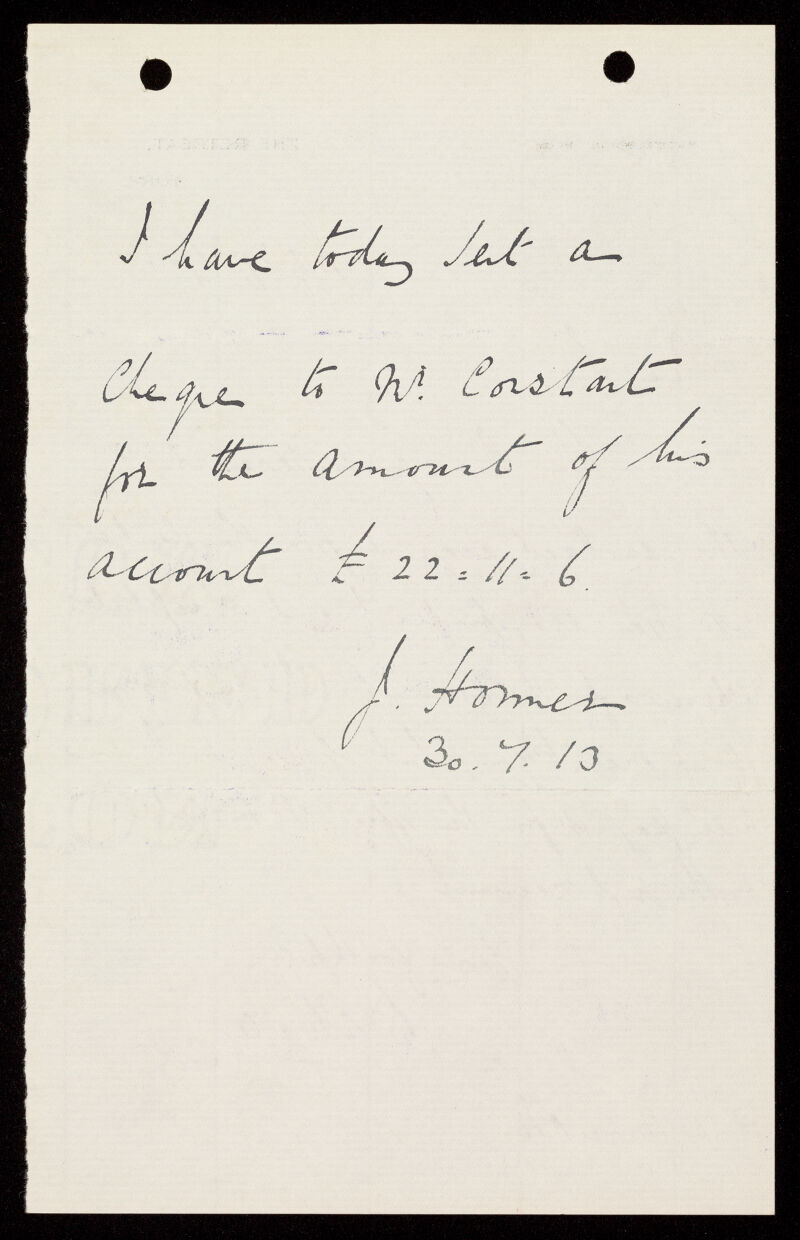 I have today sent a
Cheque to Mr. Constant
for the amount of his
account £22=11=6.
J. Hormer
30.7.13
THE RETREAT,